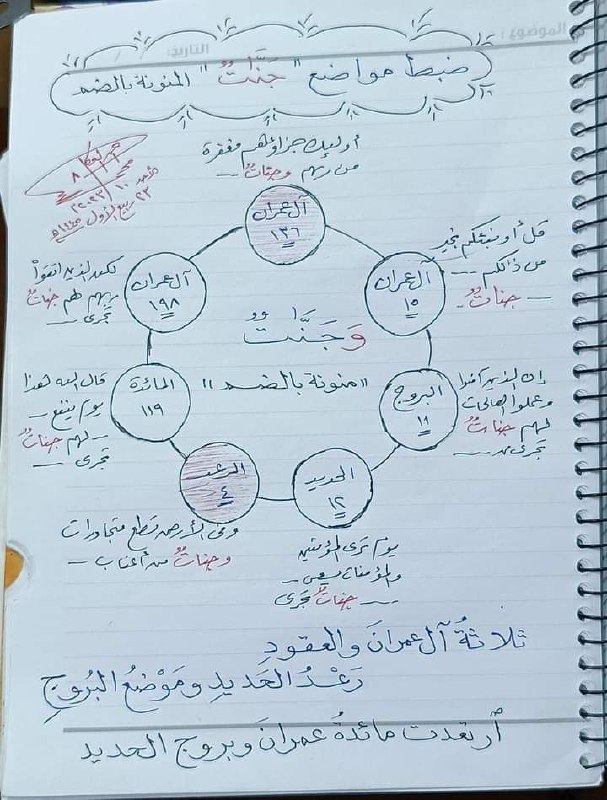 الموضوع:
التاريخ:
ضبط مواضع "جَنَّٰتٌ" المنونة بالضم
أولئك جزاؤهم مغفرة
من ربهم وجناتٌ
آل عمران
١٣٦
قل أؤنبئكم بخير
من ذالكم
جناتٌ
آل عمران
١٥
إن الذين آمنوا
وعملوا الصالحات
لهم جناتٌ
تجرى من
البروج
١١
يوم ترى المؤمنين
والمؤمنات يسعى
جناتٌ تجرى
الحديد
١٢
وفى الأرض قطع متجاورات
وجناتٌ من أعناب
الرعد
٤
قال الله هذا
يوم ينفع
لهم جناتٌ
تجرى
المائدة
١١٩
لكن الذين اتقوا
ربهم لهم جناتٌ
تجرى
آل عمران
١٩٨
وَجَنَّٰتٌ
"منونة بالضم"
ثلاثةُ آل عمرانَ والعقودِ
رَعْدُ الحَديدِ ومَوْضِعُ البُروجِ
أرتعدت مائدةُ عمرانَ وبروج الحديد